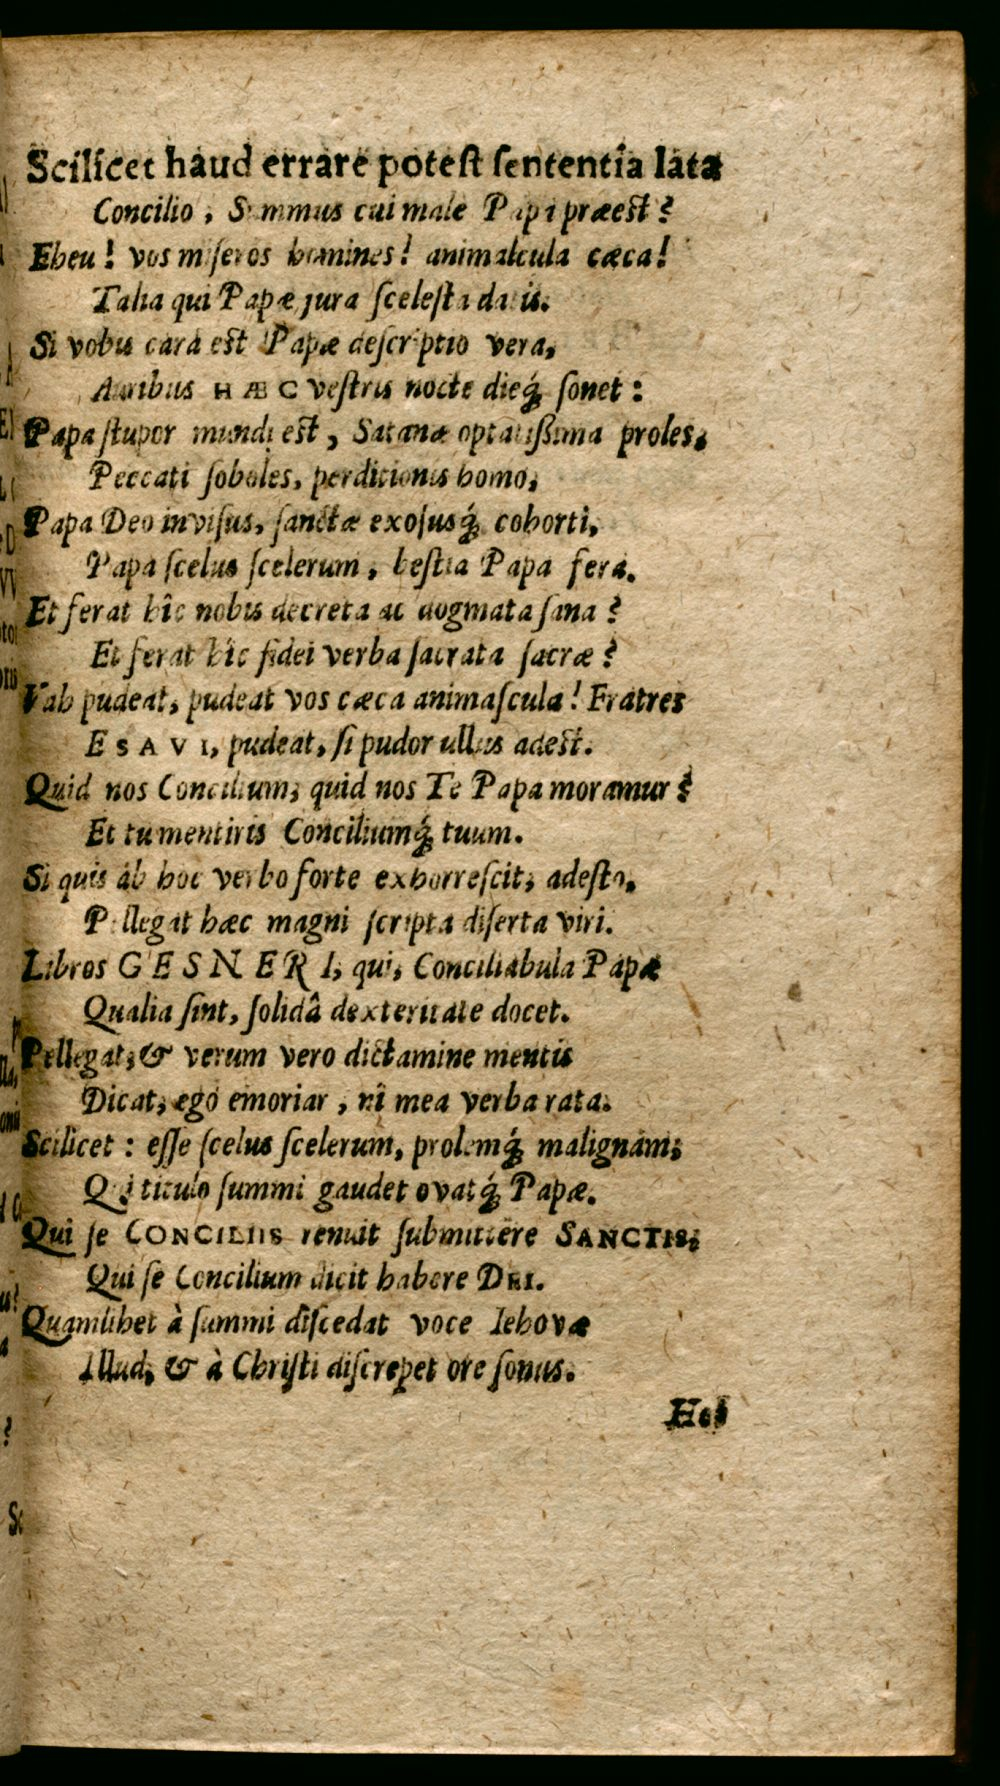 Scilicet haud errare potest sententia lata
Concilio, Summus cui male Papa præest?
Eheu! vos miseros homines! animalcula cæca!
Talia qui Papæ jura scelesta datis.
Si vobis cara est Papæ descriptio vera,
Auribus HÆC vestris nocte dieq́; sonet:
Papa stupor mundi est, Satanæ optatißima proles,
Peccati soboles, perditionis homo,
Papa Deo invisus, sanctæ exosusq́; cohorti,
Papa scelus scelerum, bestia Papa fera.
Et ferat hîc nobis decreta ac dogmata sana?
Et ferat hîc fidei verba sacrata sacræ?
Vah pudeat, pudeat vos cæca animascula! Fratres
ESAVI, pudeat, si pudor ullus adest.
Quid nos Concilium; quid nos Te Papa moramur?
Et tu mentiris Conciliumq́; tuum.
Si quis ab hoc verbo forte exhorrescit; adesto,
Pellegat hæc magni scripta diserta viri.
Libros GESNERI, qui, Conciliabula Papæ
Qualia sint, solidâ dexteritate docet.
Pellegat; & verum vero dictamine mentis
Dicat, ego emoriar, nî mea verba rata.
Scilicet: esse scelus scelerum, prolemq́; malignam;
Qui titulo summi gaudet ovatq́; Papæ.
Qui se CONCILIIS renuit submittere SANCTIS;
Qui se Concilium dicit habere DEI.
Quamlibet à summi discedat voce Iehovæ
Illud, & à Christi discrepet ore sonus.